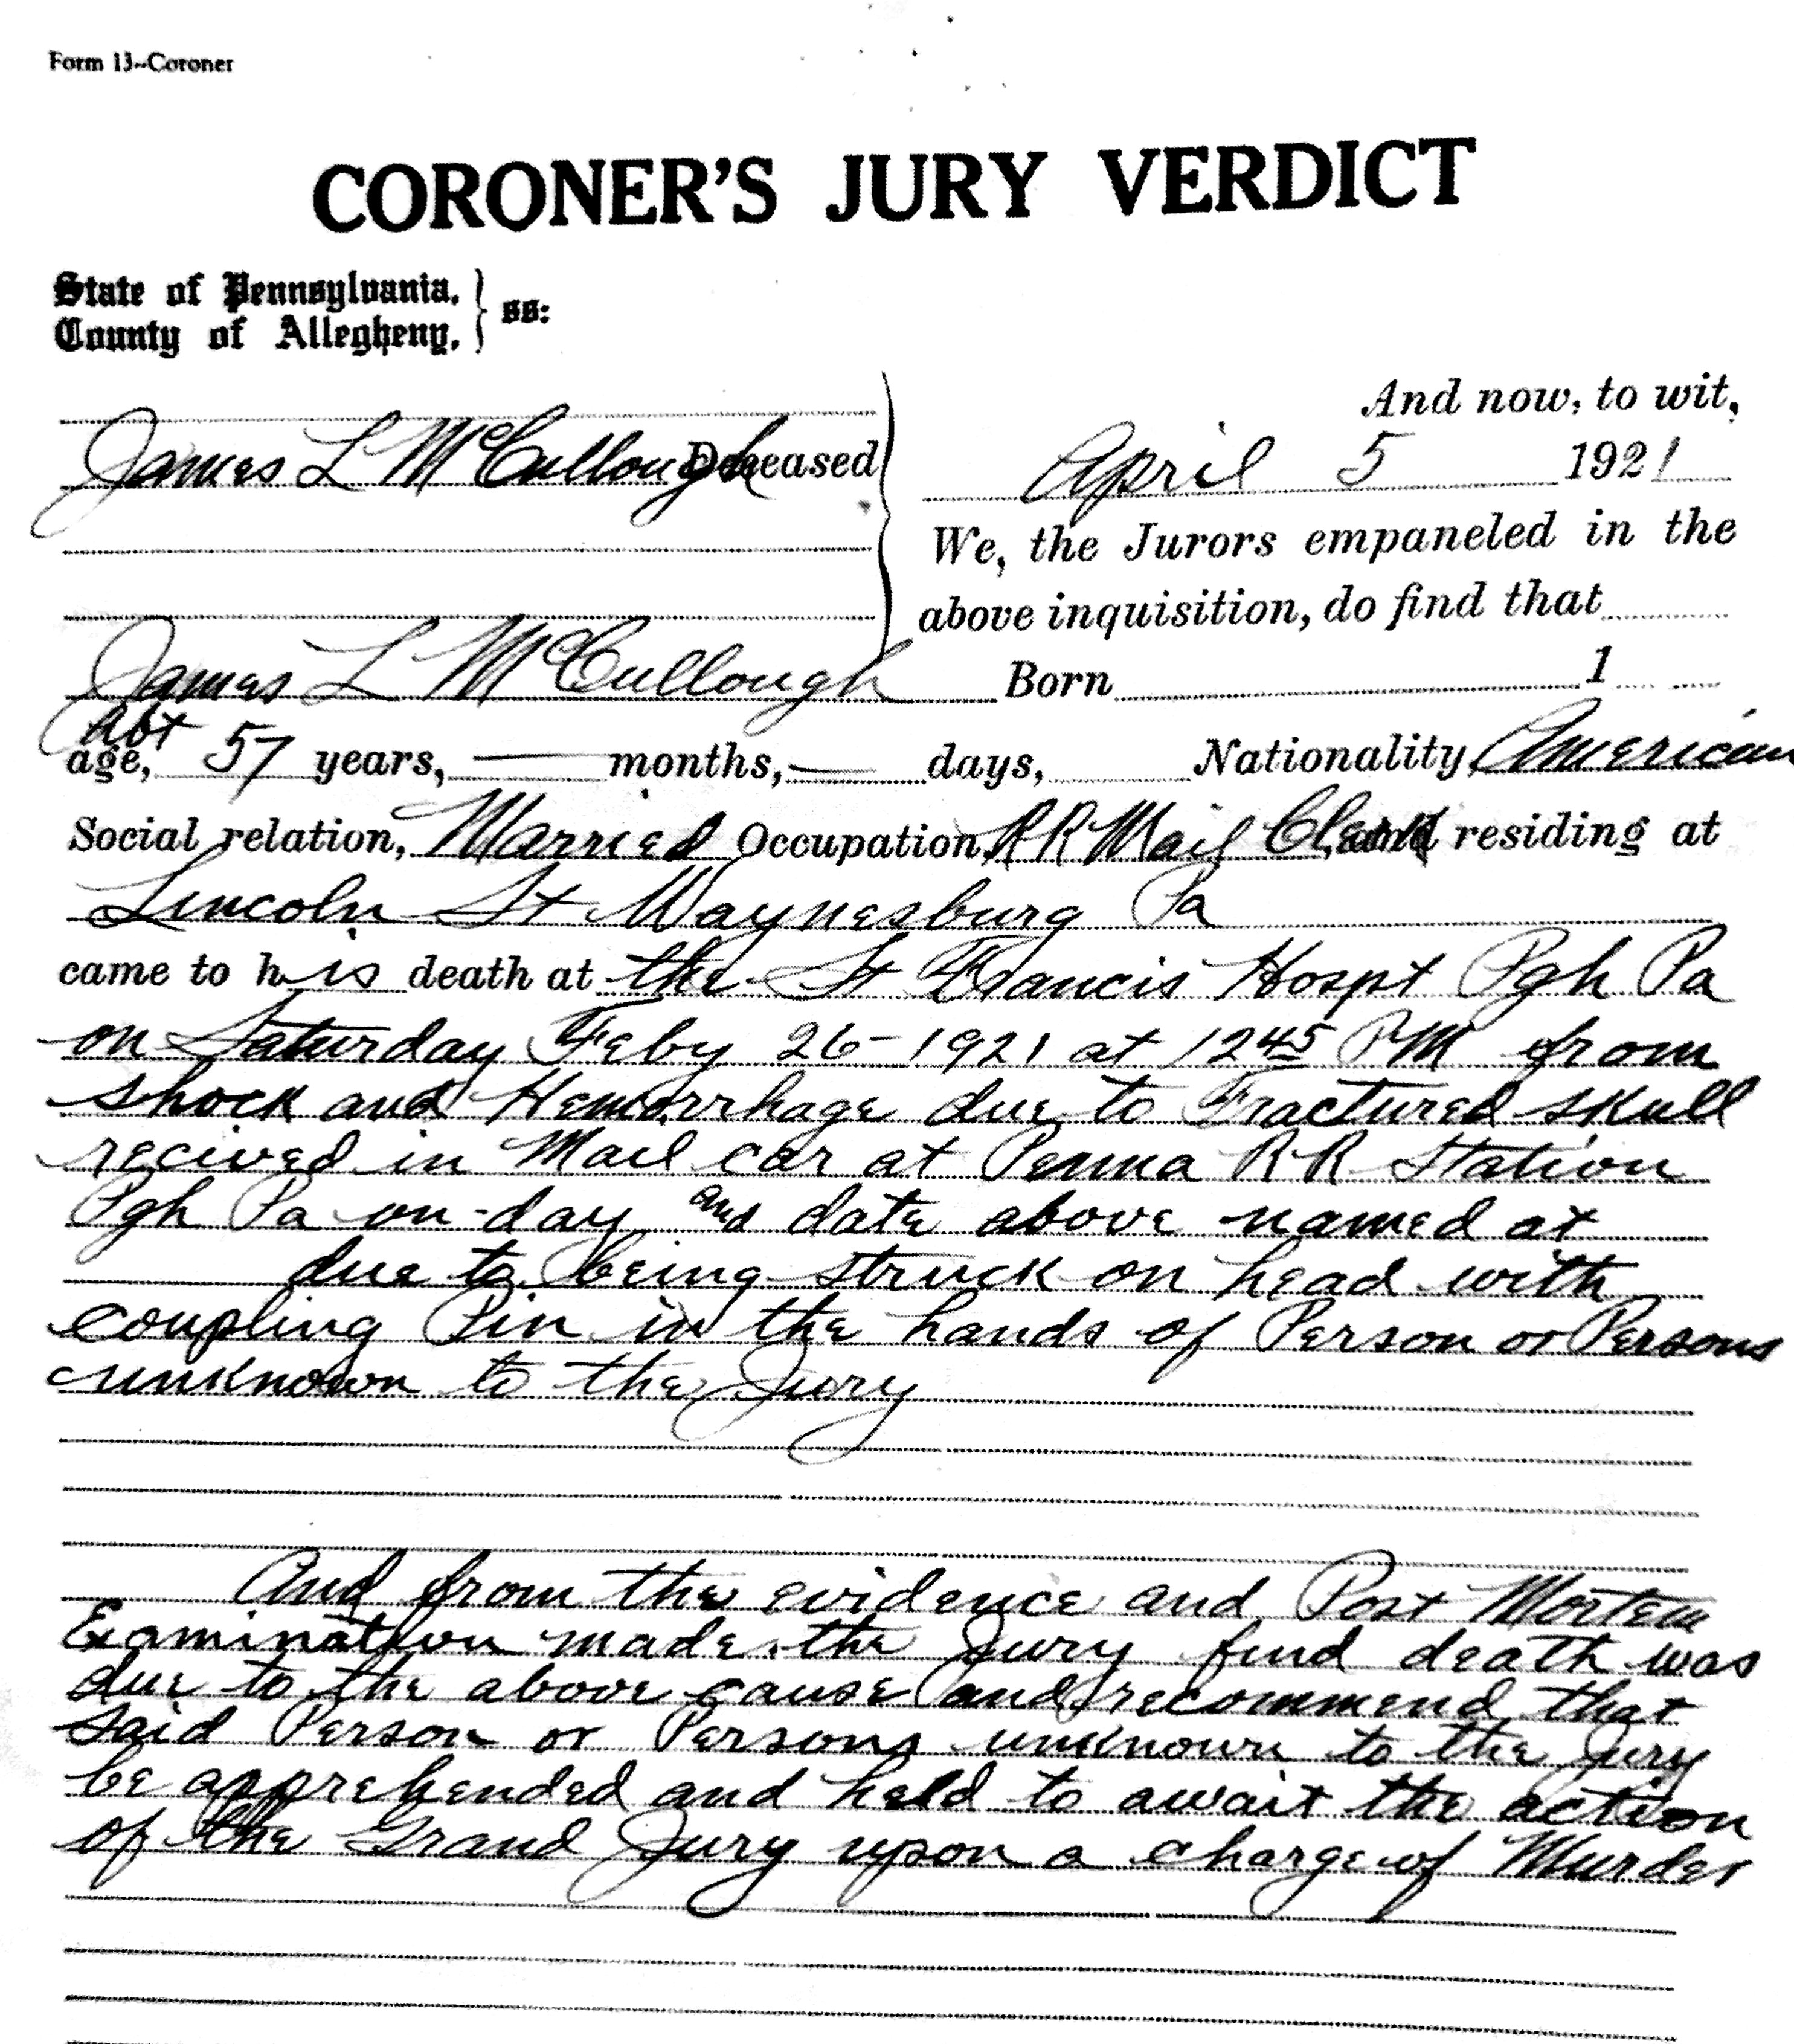 Form 13--Coroner
CORONER'S JURY VERDICT
State of Pennsylvania, } ss:
County of Allegheny,
And now, to wit,
James L McCullough Deceased
April 5 1921
We, the Jurors empaneled in the
above inquisition, do find that
James L McCullough Born 1
Abt
age, 57 years, — months, — days, Nationality, American
Social relation, Married Occupation, RR Mail Clerk and residing at
Lincoln St Waynesburg Pa
came to his death at the St Francis Hospt Pgh Pa
on Saturday Feby 26-1921 at 1245 PM from
shock and Hemorrhage due to Fractured skull
recived in Mail car at Penna RR Station
Pgh Pa on day and date above named at
due to being struck on head with
coupling Pin in the hands of Person or Persons
unknown to the Jury
And from the evidence and Post Mortem
Examination made the Jury find death was
due to the above cause and recommend that
said Person or Persons unknown to the Jury
be apprehended and held to await the action
of the Grand Jury upon a charge of Murder